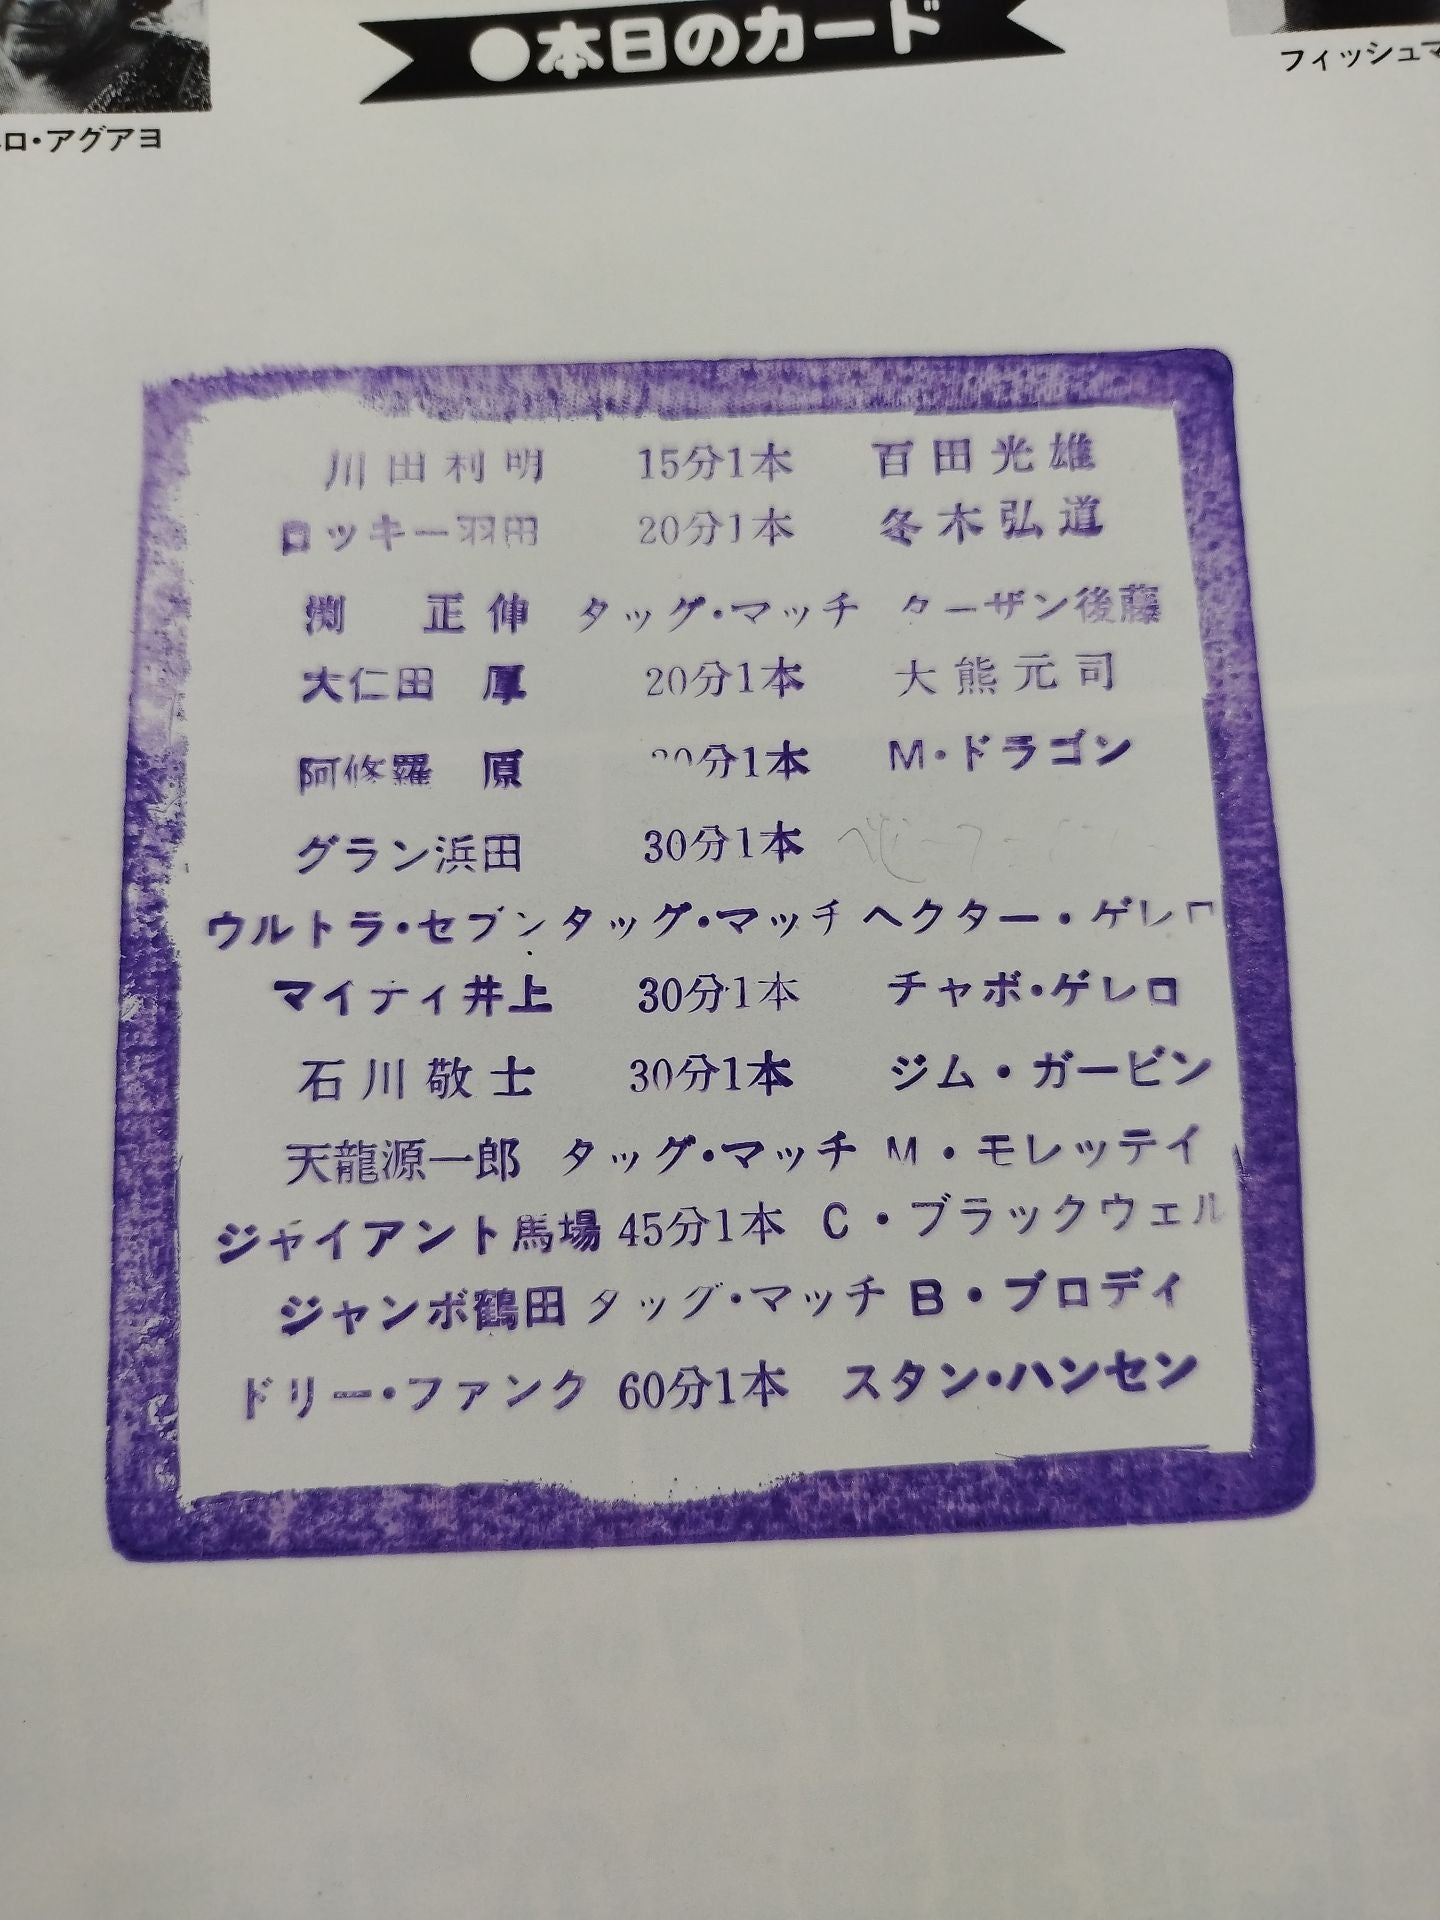 ●本日のカード
ロ・アグアヨ
フィッシュマ
川田利明 15分1本 百田光雄
ロッキー羽田 20分1本 冬木弘道
渕 正伸 タッグ・マッチ ターザン後藤
大仁田 厚 20分1本 大熊元司
阿修羅 原 分1本 M・ドラゴン
グラン浜田 30分1本
ウルトラ・セブン タッグ・マッチ ヘクター・ゲレロ
マイティ井上 30分1本 チャボ・ゲレロ
石川敬士 30分1本 ジム・ガービン
天龍源一郎 タッグ・マッチ M・モレッティ
ジャイアント馬場 45分1本 C・ブラックウェル
ジャンボ鶴田 タッグ・マッチ B・ブロディ
ドリー・ファンク 60分1本 スタン・ハンセン